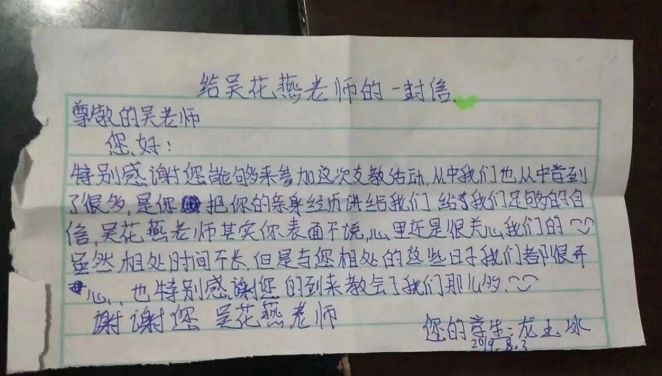 给吴花燕老师的一封信
尊敬的吴老师
您好:
特别感谢您能够来参加这次支教活动,从中我们也从中学到
了很多,是你把你的亲身经历讲给我们 给了我们足够的自
信,吴花燕老师其实你表面不说,心里还是很关心我们的
虽然相处时间不长,但是与您相处的这些日子我们都很开
心,也特别感谢您的到来教会了我们那么多.
谢谢您 吴花燕老师
您的学生:龙玉冰
2019.8.3